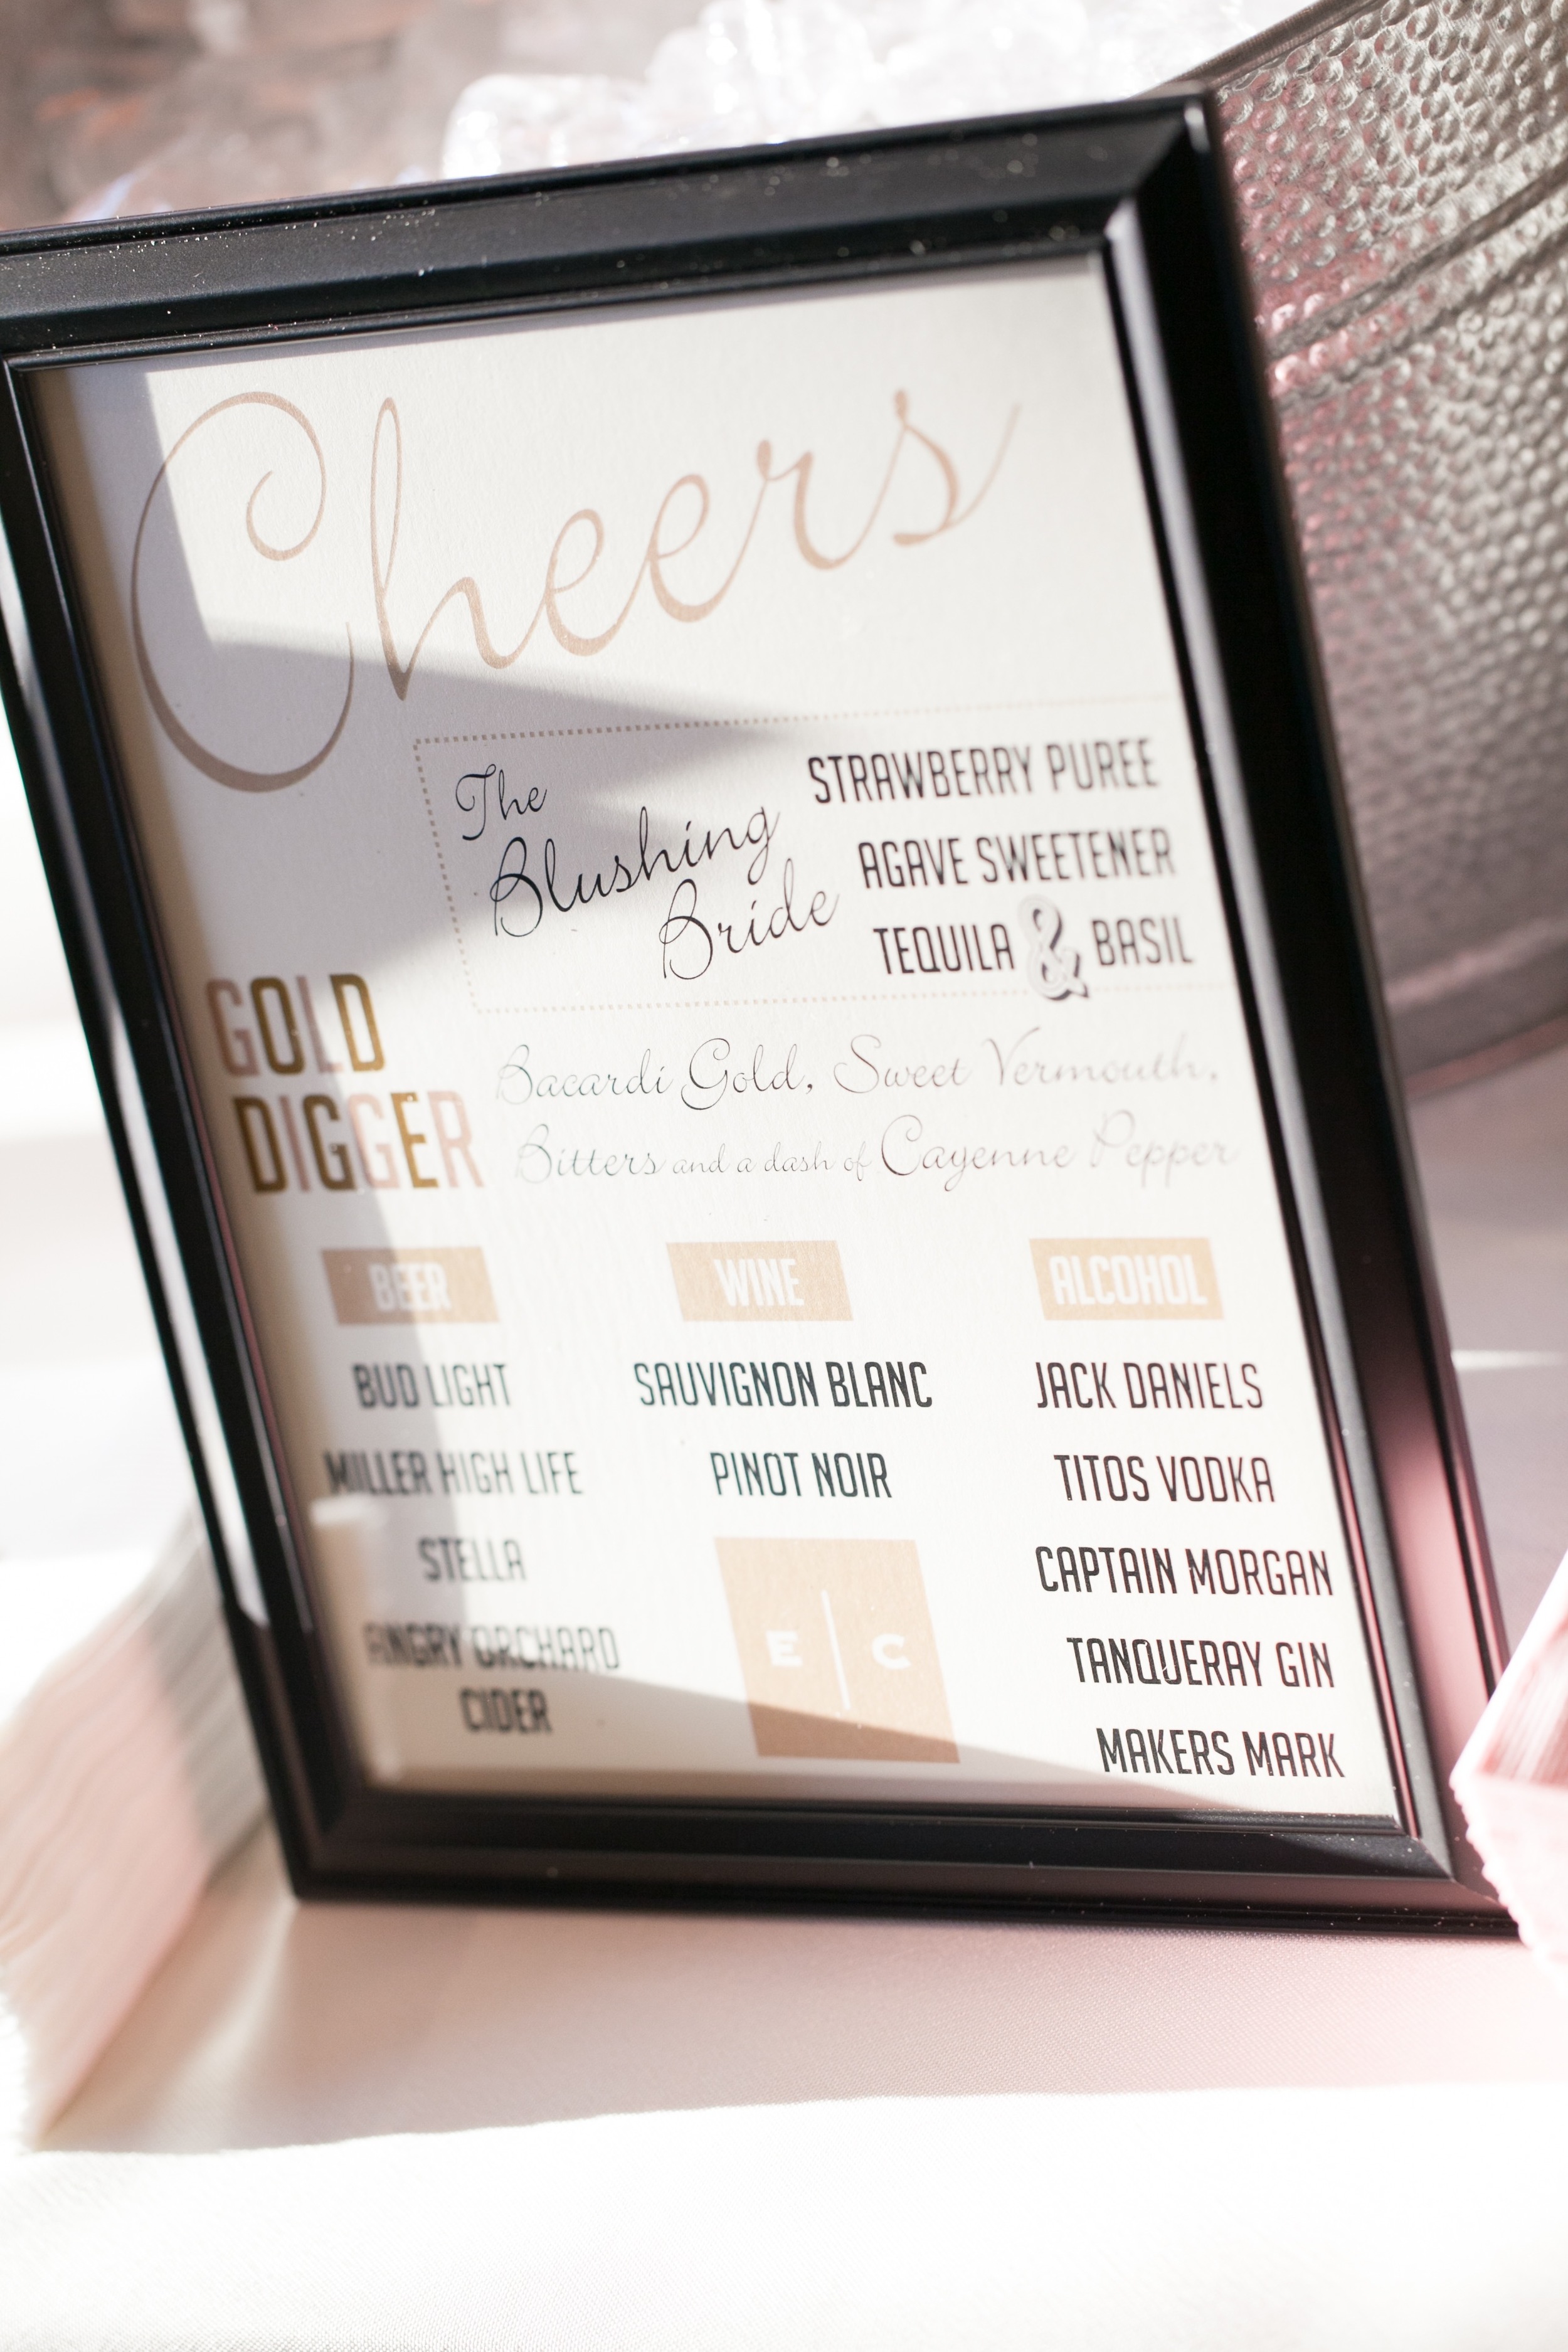 Cheers
The
Blushing
Bride
STRAWBERRY PUREE
AGAVE SWEETENER
TEQUILA & BASIL
GOLD
DIGGER
Bacardi Gold, Sweet Vermouth,
Bitters and a dash of Cayenne Pepper
BEER
BUD LIGHT
MILLER HIGH LIFE
STELLA
ANGRY ORCHARD
CIDER
WINE
SAUVIGNON BLANC
PINOT NOIR
E | C
ALCOHOL
JACK DANIELS
TITOS VODKA
CAPTAIN MORGAN
TANQUERAY GIN
MAKERS MARK